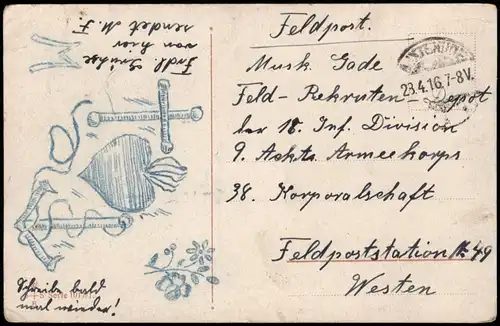 Frdl. Grüße
von hier
sendet M. F.
Feldpost.
23.4.16.7-8V.
Musk. Gode
Feld-Rekruten-Depot
der 18. Inf. Division
9. Armeekorps
38. Korporalschaft
Feldpoststation № 49
Westen
Schreibe bald
mal wieder!
Serie